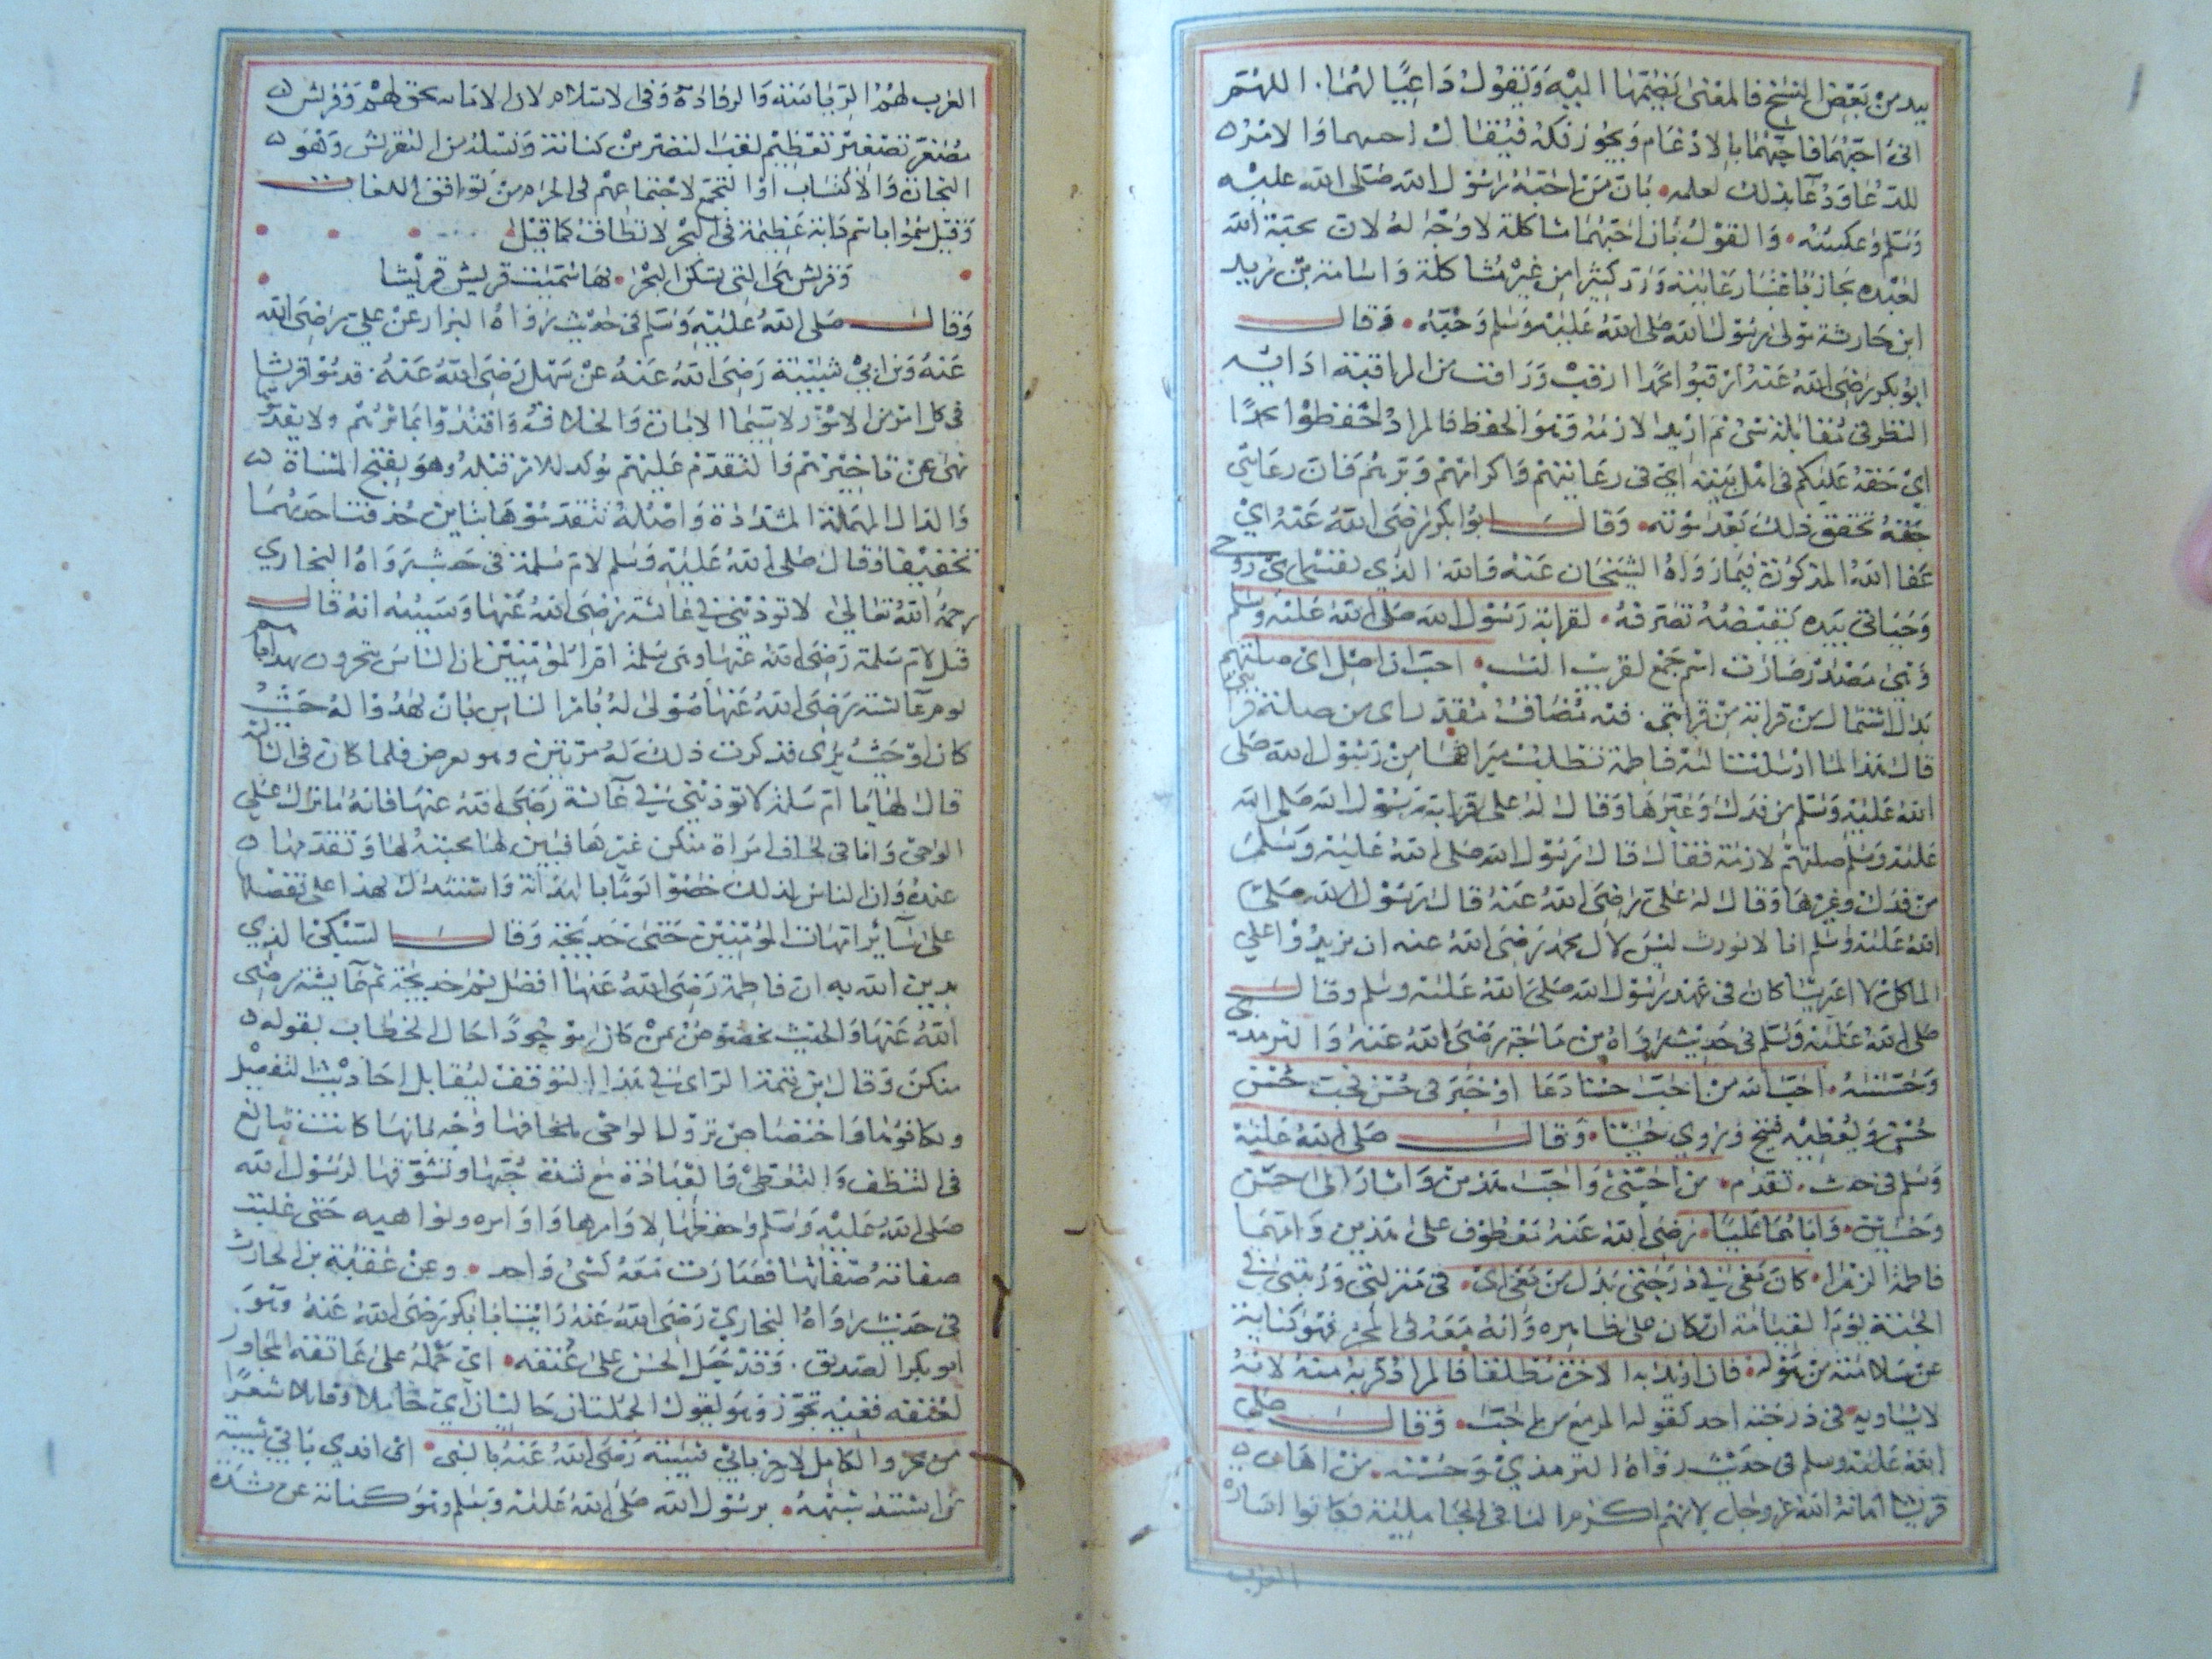 بيد من بعض النسخ فالمعنى يضمهما اليه ويقول داعيا لهما. اللهم
اني احبهما فاحبهما بالادغام ويجوز فكه فيقال احببهما والامر
للدعا ودعا بذلك لعلمه بان من احبه رسول الله صلى الله عليه
وسلم وعكسه والقول بان احبهما مشاكلة لا وجه له لان محبة الله
لعبده مجاز باعتبار غايته وورد كثيرا من غير مشاكلة واسامة بن زيد
ابن حارثة مولى رسول الله صلى الله عليه وسلم وحبه وقال
ابو بكر رضي الله عنه ارقبوا محمدا ارقب ورافب من المراقبة ادامة
النظر في مقابلة شئ ثم اريد لازمه وهو الحفظ فالمراد احفظوا محمدا
اي حقه عليكم في اهل بيته اي في رعايتهم واكرامهم وبرهم فان رعايتي
حقه تحقق ذلك بعد موته وقال ابو بكر رضي الله عنه اي
عفا الله المذكورة فيما رواه الشيخان عنه فالله الذي نفسي اي روحي
وحياتي بيده بقبضه تصرفه لقرابة رسول الله صلى الله عليه وسلم
وهي مصدر صارت اسم جمع لقريب النسب احب ان اصل اي صلتهم
بدل اشتمال من قرابة من قرابتي فيه مضاف مقدر اي من صلة قرابتي
قال هذا لما ارسلت اليه فاطمة تطلب ميراثها من رسول الله صلى
الله عليه وسلم من فدك وغيرها وقال له على قرابة رسول الله صلى الله
عليه وسلم صلتهم لازمة فقال قال رسول الله صلى الله عليه وسلم
من فدك وغيرها وقال له علي رضي الله عنه قال رسول الله صلى
الله عليه وسلم انا لا نورث ليس لال محمد رضي الله عنه ان يزيدوا علي
الماكل لا اغير شيا كان في عهد رسول الله صلى الله عليه وسلم وقال
صلى الله عليه وسلم في حديث رواه بن ماجة رضي الله عنه والترمذي
وحسنه احب الله من احب حسنا دعا او خبر في حسن فحب حسن
حسن ويعطيه فتح ويروي حسينا وقال صلى الله عليه
وسلم في حديث تقدم من احبني واحب هذين واشار الى حسن
وحسين واباهما عليا رضي الله عنه معطوف على هذين وامهما
فاطمة الزهرا كان معي في درجتي بدل من معي اي في منزلتي ورتبتي في
الجنة يوم القيامة ان كان على ظاهره وانه معه في المحشر فهو كناية
عن سلامته من هوله فان اريد به الاخرة مطلقا فالمراد قربه منه لانه
لا يساويه في درجته احد كقوله المرء مع من احب وقال صلى
الله عليه وسلم في حديث رواه الترمذي وحسنه من اهان
قريشا اهانه الله عز وجل لانهم اكرم الناس في الجاهلية فكانوا اشارة
العرب
العرب لهم الرياسة والرفادة وفي الاسلام لان الامامة بحق لهم وقريش
مصغر تصغير تعظيم لقب النضر من كنانة ونسله من التقرش وهو
التجارة والاكتساب او التجمع لاجتماعهم في الحرم من توافق اللغات
وقيل سموا باسم دابة عظيمة في البحر لا تطاق كما قيل
وقريش هي التي تسكن البحر بها سميت قريش قريشا
وقال صلى الله عليه وسلم في حديث رواه البزار عن علي رضي الله
عنه وبن ابي شيبة رضي الله عنه عن سهل رضي الله عنه. قدموا قريشا
في كل امر من الامور لا سيما الامامة والخلافة واقتدوا بما ثرهم ولا تقدموا
نهى عن تاخيرهم والتقدم عليهم موكد للامر قبله وهو بفتح المثناة
والدال المهملة المشددة واصله تتقدموها بتاين حذفت احداهما
تخفيفا وقال صلى الله عليه وسلم لام سلمة في حديث رواه البخاري
رحمه الله تعالى لا توذيني في عائشة رضي الله عنها وسببه انه قال
قبل لام سلمة رضي الله عنها ومن سلمة امر المومنين ان الناس يتحرون بهداياهم
يوم عائشة رضي الله عنها فقولي له يامر الناس بان يهدوا له حيث
كان او حيث يرى فذكرت ذلك له مرتين وهو يعرض فلما كان في الثالثة
قال لها يا ام سلمة لا توذيني في عائشة رضي الله عنها فانه ما نزل علي
الوحي وانا في لحاف امراة منكن غيرها فبين لها محبته لها وتقدمها
عنده وان الناس لذلك خصوا يومها بالهداية واستدل بهذا على تفضيلها
على سائر امهات المومنين حتى خديجة وقال السبكي الذي
يدين الله به ان فاطمة رضي الله عنها افضل ثم خديجة ثم عائشة رضي
الله عنها والحديث مخصوص بمن كان موجودا حال الخطاب بقوله
منكن وقال بن تيمية الراي في هذا التوقف ليقابل احاديث التفضيل
وتكافؤها واختصاص نزول الوحي بلحافها وجه بانها كانت تبالغ
في التنظف والتعطر والعبادة مع شدة حبها وتشوقها لرسول الله
صلى الله عليه وسلم وحفظها لاوامرها واوامره ونواهيه حتى غلبت
صفاته صفاتها فصارت معه كشئ واحد وعن عقبة بن الحارث
في حديث رواه البخاري رضي الله عنه رايت ابا بكر رضي الله عنه وهو
ابو بكر الصديق. وقد حمل الحسن على عنقه اي حمله على عاتقه المجاور
لعنقه ففيه تجوز وهو يقول الجملتان حاليتان اي حاملا وقائلا شعرا
من مجزو الكامل لاخر بابي شبيه رضي الله عنه بالنبي اي افدي بابي شبيه
من اشتد شبهه برسول الله صلى الله عليه وسلم وهو كناية عن شدة